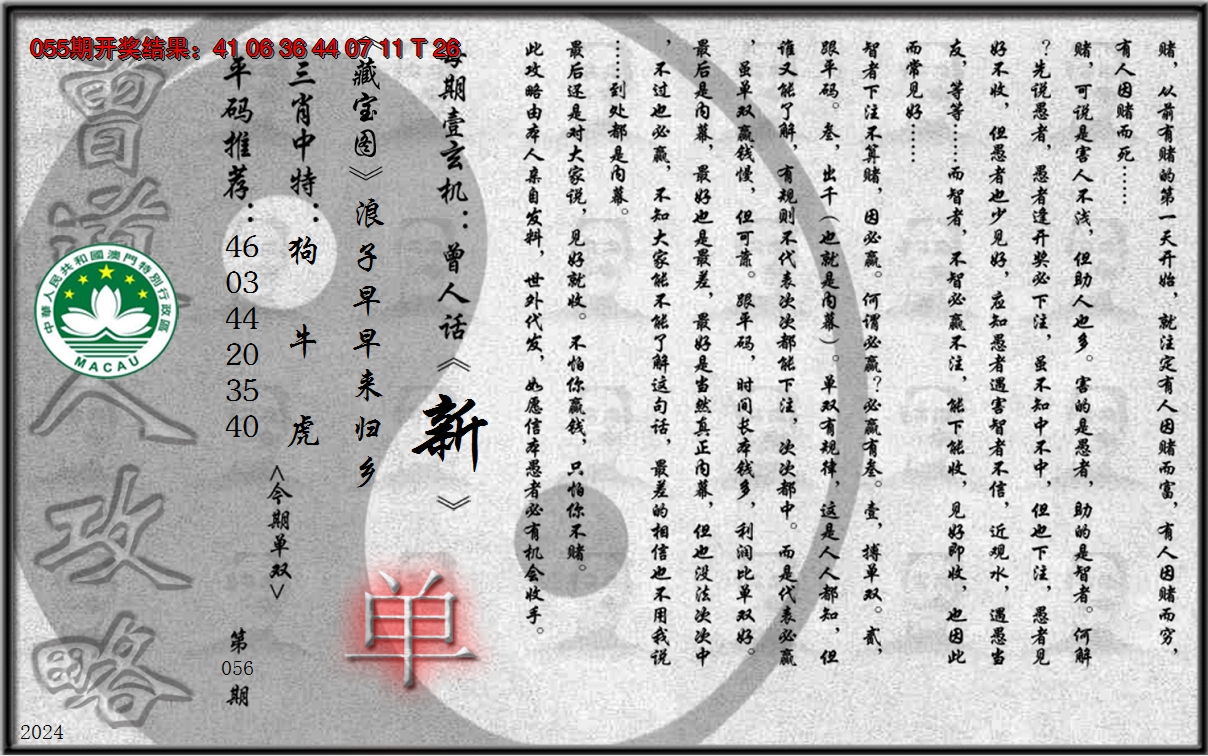 055期开奖结果：41 06 36 44 07 11 T 26
赌，从前有赌的第一天开始，就注定有人因赌而富，有人因赌而穷，
有人因赌而死……
赌，可说是害人不浅，但助人也多。害的是愚者，助的是智者。何解
？先说愚者，愚者逢开奖必下注，虽不知中不中，但也下注，愚者见
好不收，但愚者也少见好，应知愚者遇害智者不信，近观水，遇愚当
友，等等……而智者，不智必赢不注，能下能收，见好即收，也因此
而常见好……
智者下注不算赌，因必赢。何谓必赢？必赢有叁。壹，搏单双。贰，
跟平码。叁，出千（也就是内幕）。单双有规律，这是人人都知，但
谁又能了解，有规则不代表次次都能下注，次次都中。而是代表必赢
，虽单双赢钱慢，但可靠。跟平码，时间长本钱多，利润比单双好。
最后是内幕，最好也是最差，最好是当然真正内幕，但也没法次次中
，不过也必赢，不知大家能不能了解这句话，最差的相信也不用我说
……到处都是内幕。
最后还是对大家说，见好就收。不怕你赢钱，只怕你不赌。
此攻略由本人亲自发料，世外代发，如愿信本愚者必有机会收手。
每期壹玄机：曾人话《新》
《藏宝图》浪子早早来归乡
单
三肖中特：狗 牛 虎
<今期单双>
平码推荐：46 03 44 20 35 40
第056期
曾道人攻略
中華人民共和國澳門特別行政區
MACAU
2024